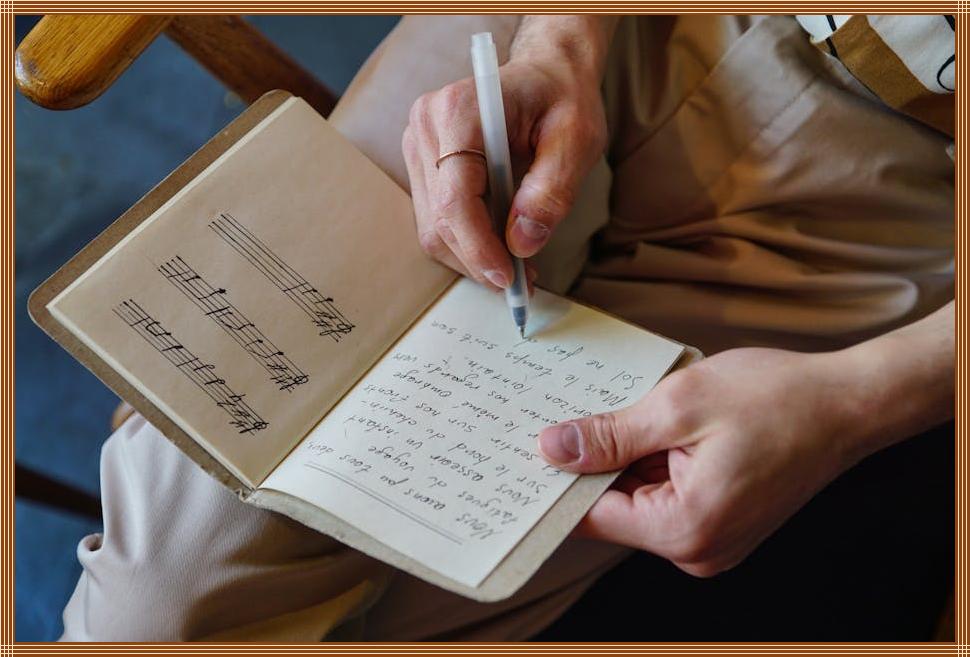 Nous avons pu tous deux,
fatigués du voyage
Nous asseoir un instant
Sur le bord du chemin-
sentir sur nos fronts
le même ombrage
nos regards vers
lointain.
Mais le temps suit son
ne pas